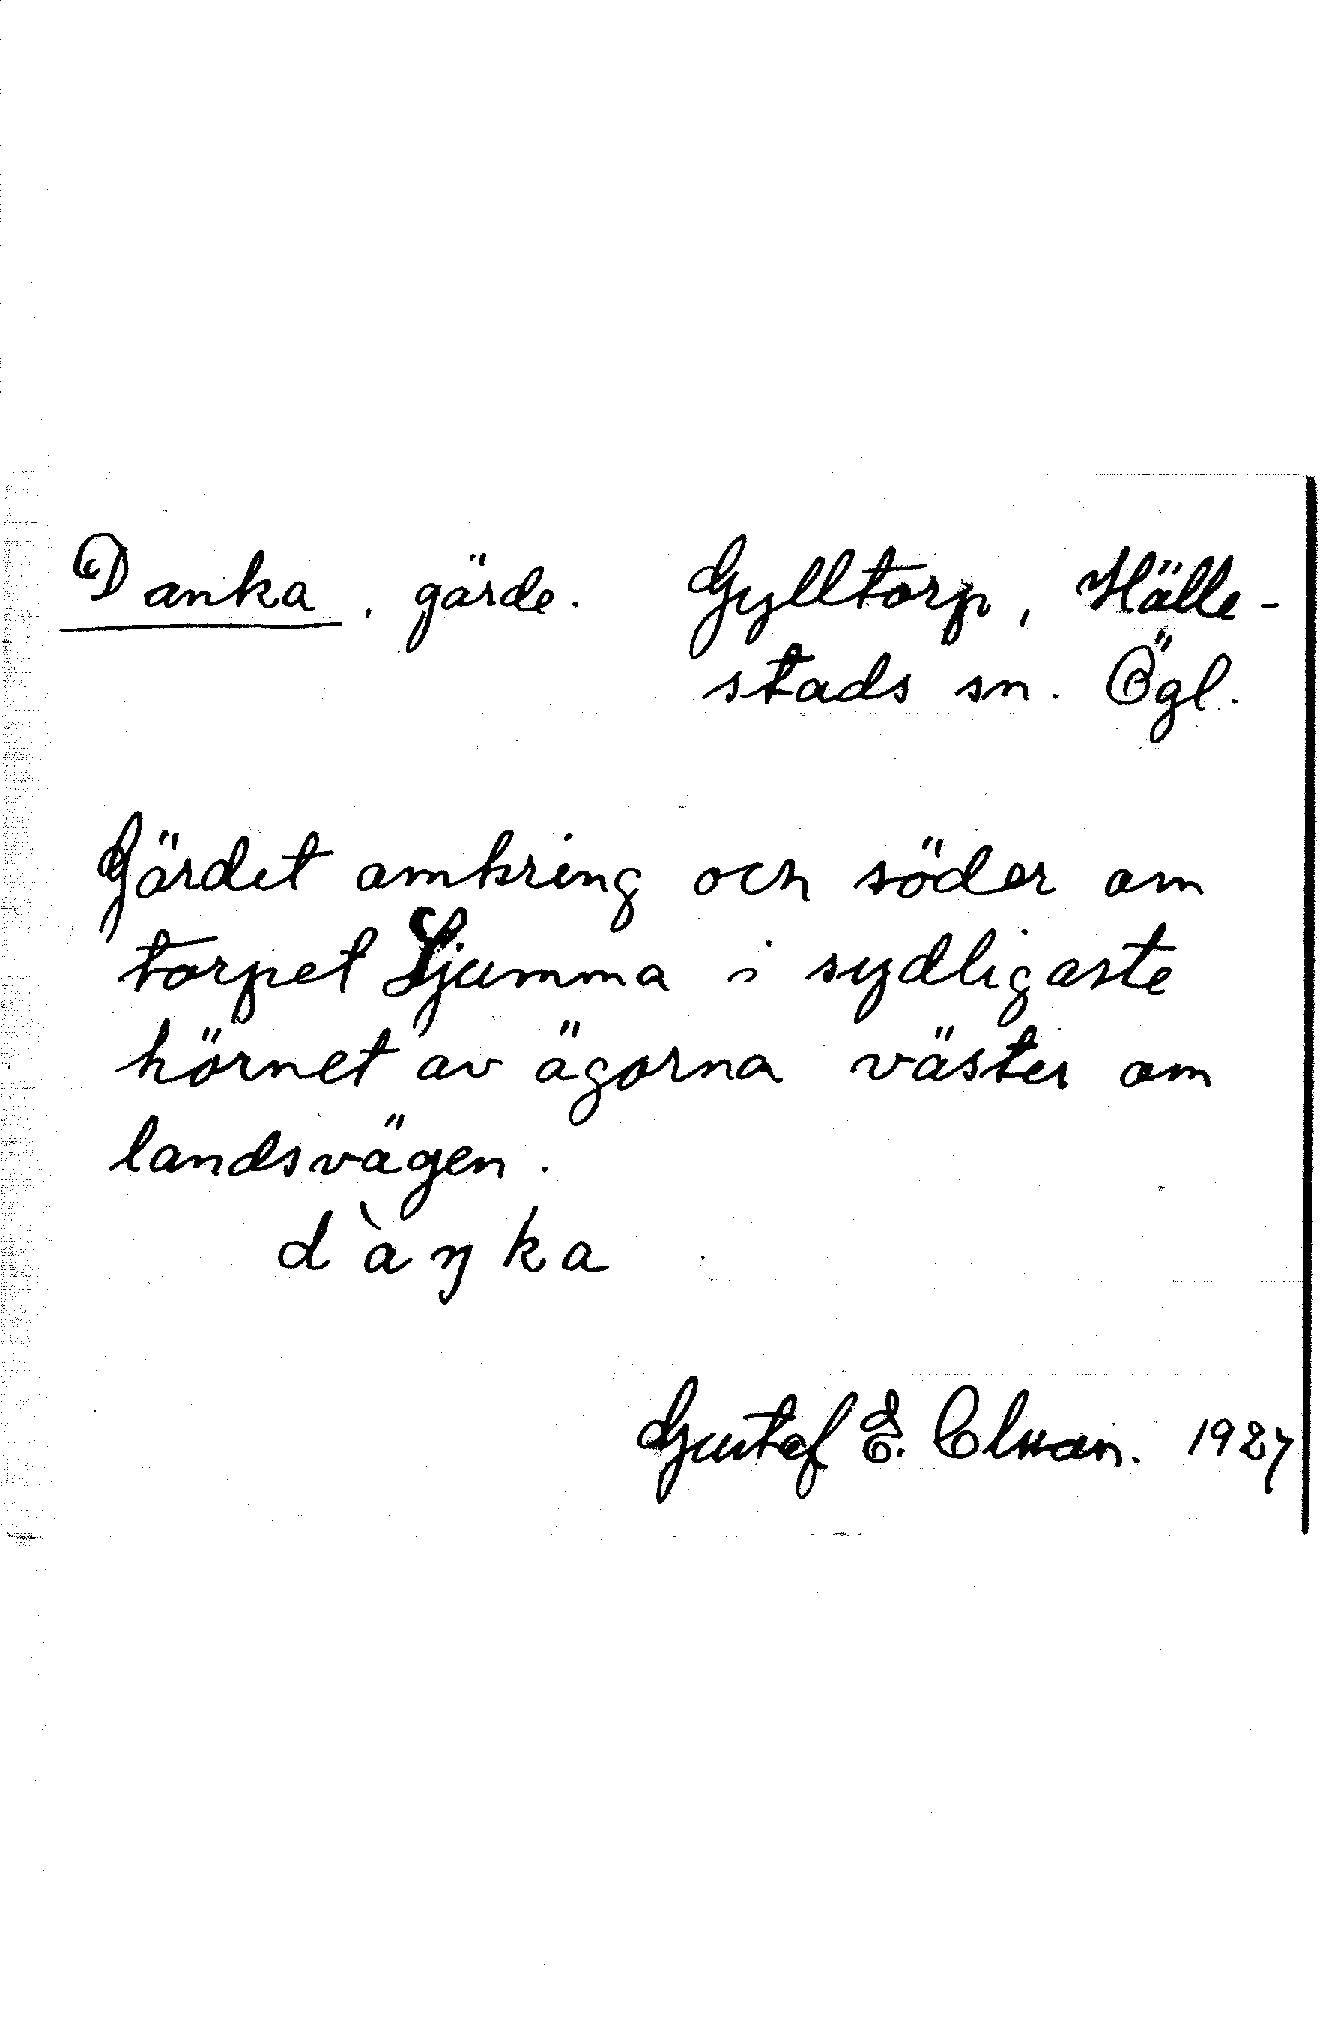 Danka, gärde. Gylltorp, Hälle-
stads sn. Ögl.
Gärdet omkring och söder om
torpet Ljumma i sydligaste
hörnet av ägorna väster om
landsvägen.
dàŋka
Gustaf E. 1927